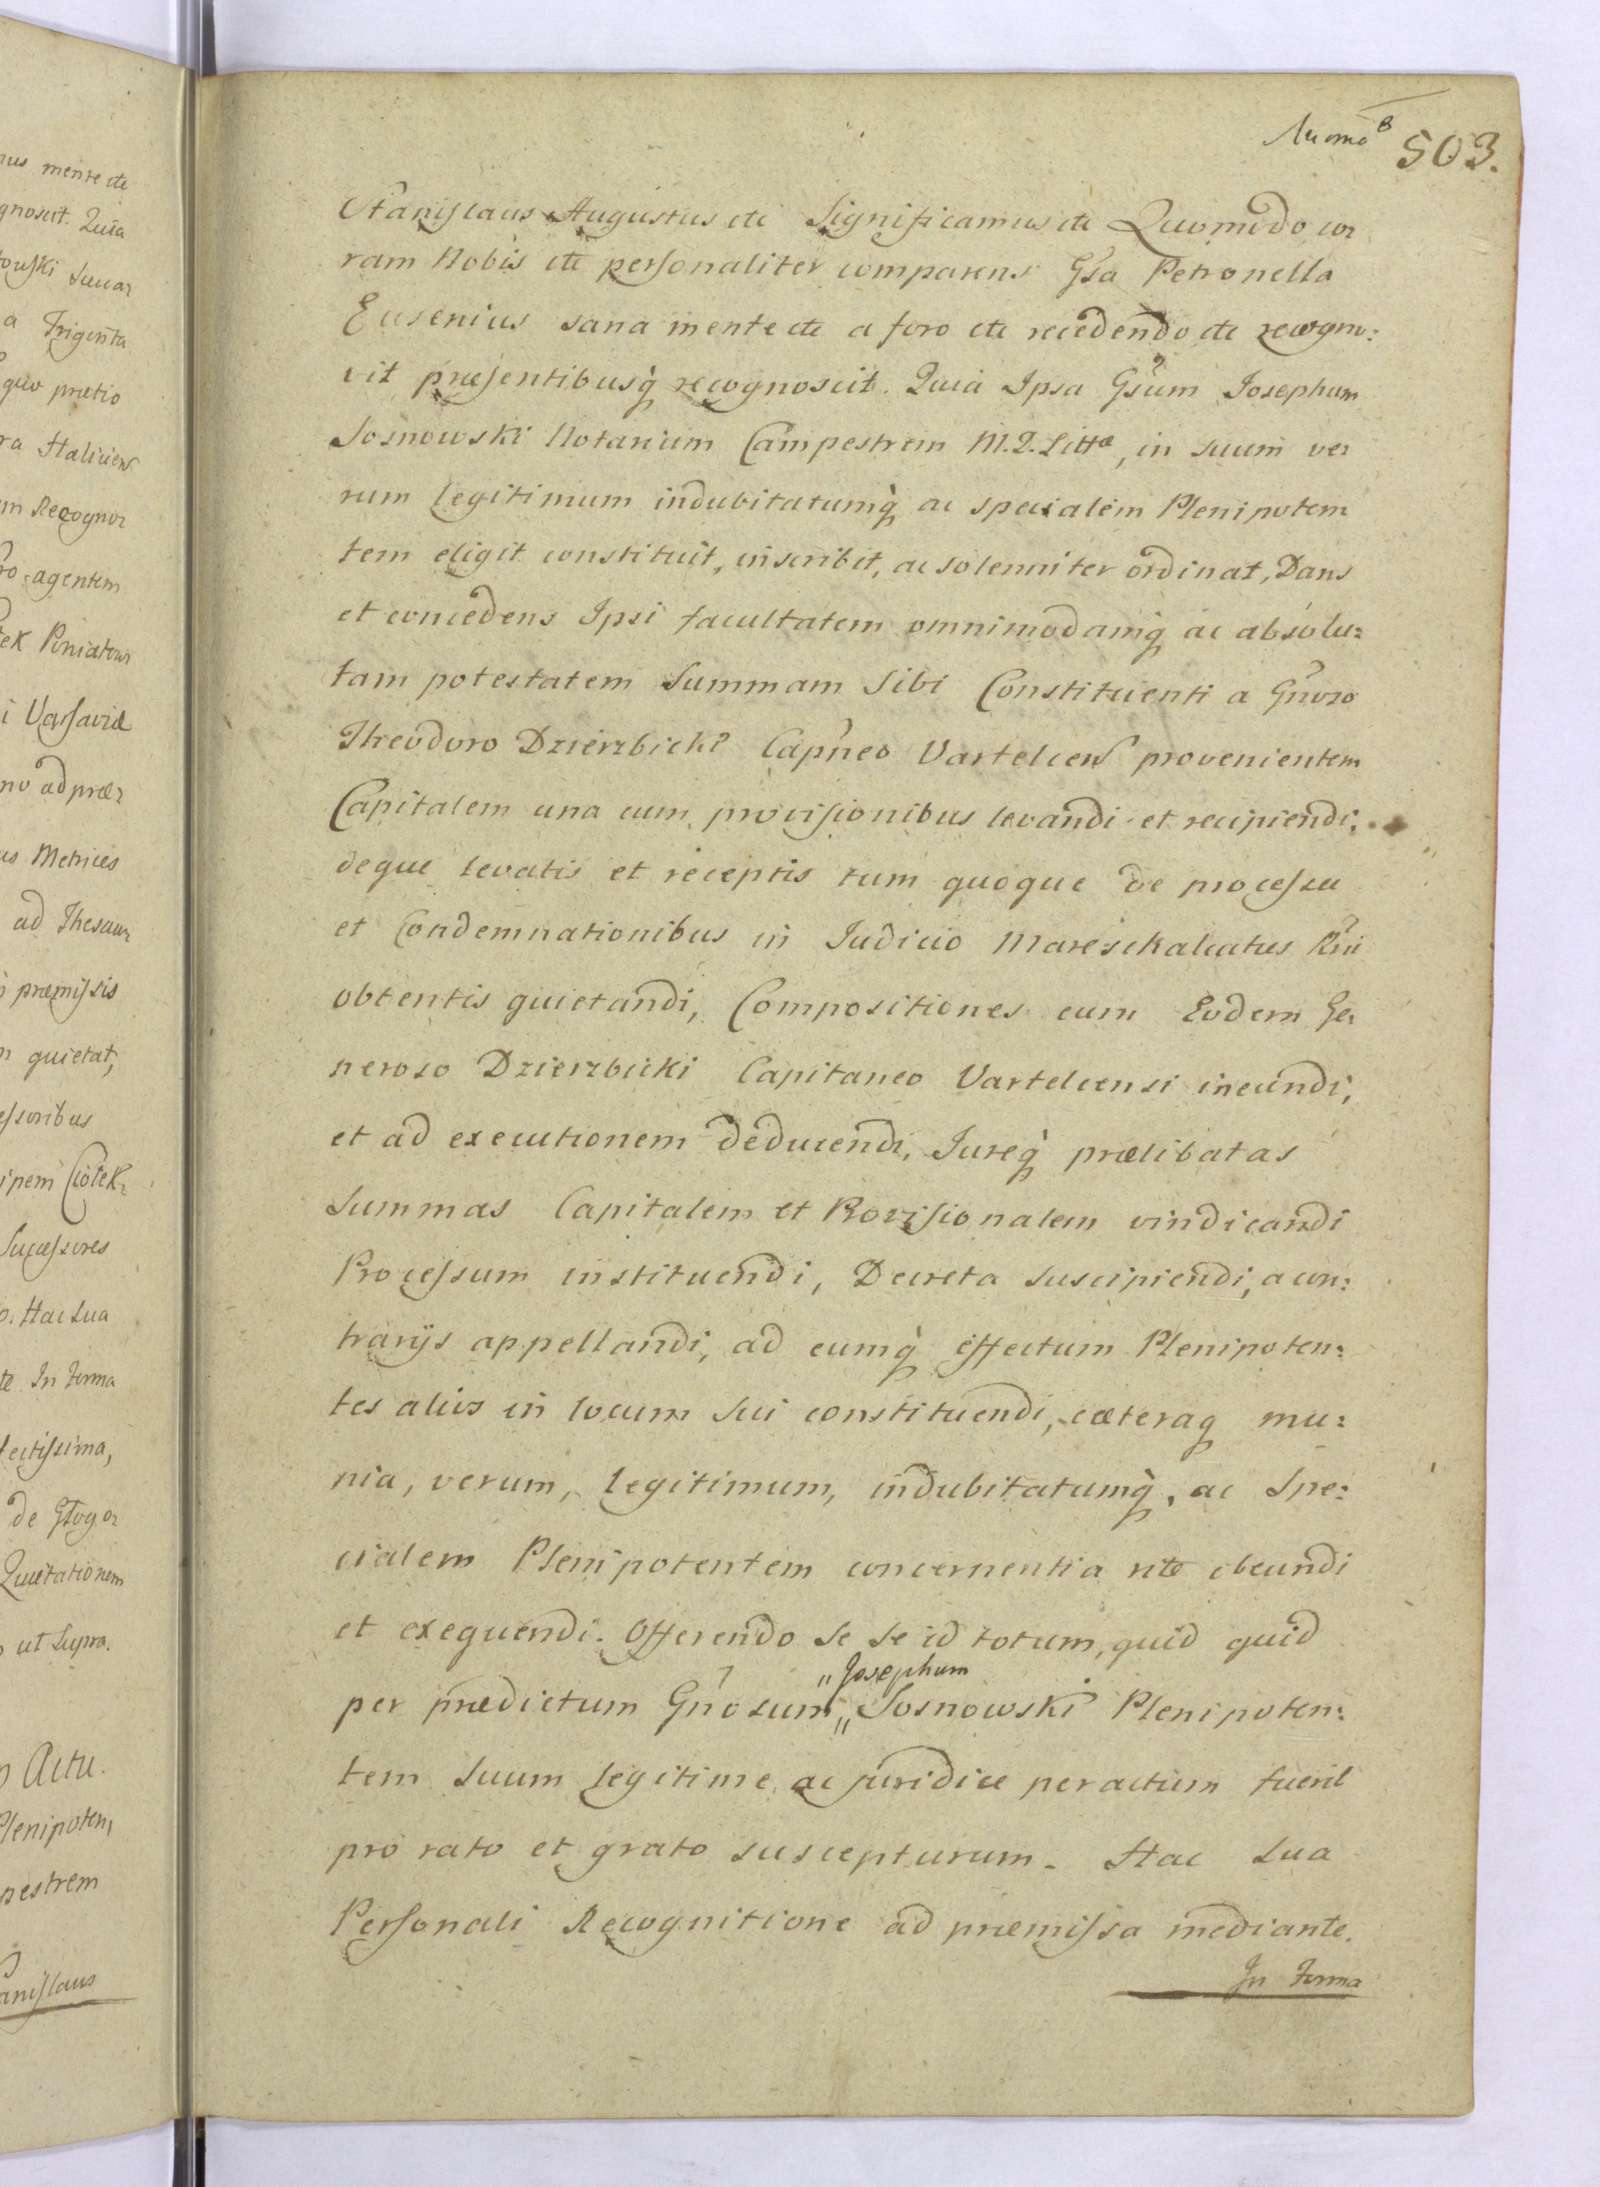 503.
Stanislaus Augustus etc Significamus etc Quomodo co=
ram Nobis etc personaliter comparens Gsa Petronella
Eusenius sana mente etc a foro etc recedendo etc recogno:
vit præsentibusq̀ recognoscit. Quia Ipsa Gsum Josephum
Sosnowski Notarium Campestrem M.D. Littæ, in suum ve=
rum legitimum indubitatumq̀ ac specialem Plenipoten=
tem eligit constituit, inscribit, ac solenniter ordinat, Dans
et concedens Ipsi facultatem omnimodamq̀ ac absolu=
tam potestatem Summam Sibi Constituenti a Gñoso
Theodoro Dzierzbicki Capñeo Vartelcen provenientem
Capitalem una cum provisionibus levandi et recipiendi,
deque levatis et receptis tum quoque de processu
et Condemnationibus in Judicio Mareschalcatus Rñi
obtentis quietandi, Compositiones cum Eodem Ge=
neroso Dzierzbicki Capitaneo Vartelcensi ineundi,
et ad executionem deducendi, Jureq̀ prælibatas
Summas Capitalem et Provisionalem vindicandi
Processum instituendi, Decreta suscipiendi, a con:
trarijs appellandi, ad eumq̀ effectum Plenipoten:
tes alios in locum sui constituendi, cæteraq mu=
nia, verum, legitimum, indubitatumq̀, ac Spe:
cialem Plenipotentem concernentia rite obeundi
et exequendi. Offerendo se se id totum, quid quid
„Josephum
per prædictum Gñosum „ Sosnowski Plenipoten:
tem suum legitime ac juridice peractum fuerit
pro rato et grato suscepturum. Hac Sua
Personali Recognitione ad præmissa mediante.
In Forma
mente etc
gnoscit. Quia
Trigenta
quo prætio
ra Haliciens
m Recogno=
ro agentem
i Varsaviæ
no ad præ=
us Metrices
ad Thesaur
præmissis
quietat,
essoribus
Successores
Hac Sua
te In Forma
lectissima,
de Głogo=
Quietationem
ut Supra.
Actu.
Plenipoten,
pestrem
anislaus